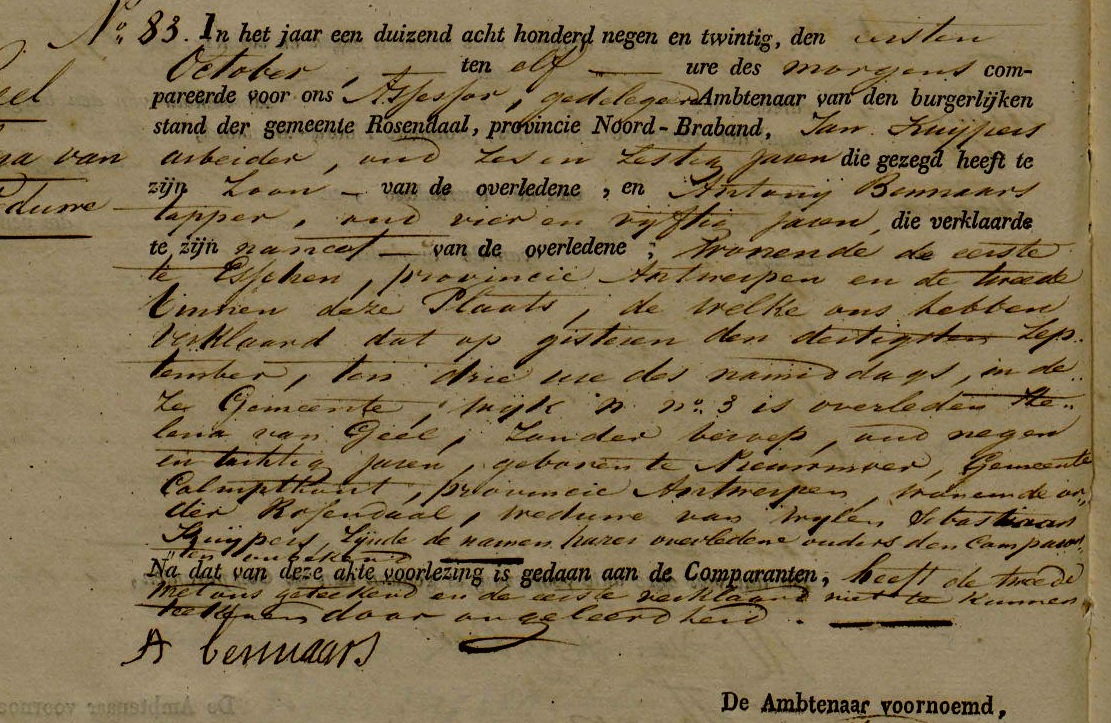 N.o 83. In het jaar een duizend acht honderd negen en twintig, den eersten
October, ten elf ure des morgens com-
eel
pareerde voor ons Assessor, gedelegeerd Ambtenaar van den burgerlijken
stand der gemeente Rosendaal, provincie Noord-Braband, Jan Kuijpers
van arbeider, oud zes en zestig jaren die gezegd heeft te
zijn Zoon van de overledene, en Antonij Bennaars
tapper, oud vier en vijftig jaren, die verklaarde
te zijn nanoof van de overledene; Wonende de eerste
te Esschen, provincie Antwerpen en de tweede
binnen deze Plaats, de welke ons hebben
Verklaard dat op gisteren den dertigsten Sep-
tember, ten drie ure des namiddags, in de-
ze Gemeente, wijk N. no. 3 is overleden He-
lena van Geel, zonder beroep, oud negen
en tachtig jaren, geboren te Nieuwmoer, Gemeente
Calmpthout, provincie Antwerpen, wonende on-
der Rosendaal, weduwe van wijlen Sebastiaan
Kuijpers, zijnde de namen harer overledene ouders den Comparan-
ten onbekend
Na dat van deze akte voorlezing is gedaan aan de Comparanten, heeft de tweede
met ons geteekend en de eerste verklaard niet te kunnen
teekenen door ongeleerdheid.
A bennaars
De Ambtenaar voornoemd,